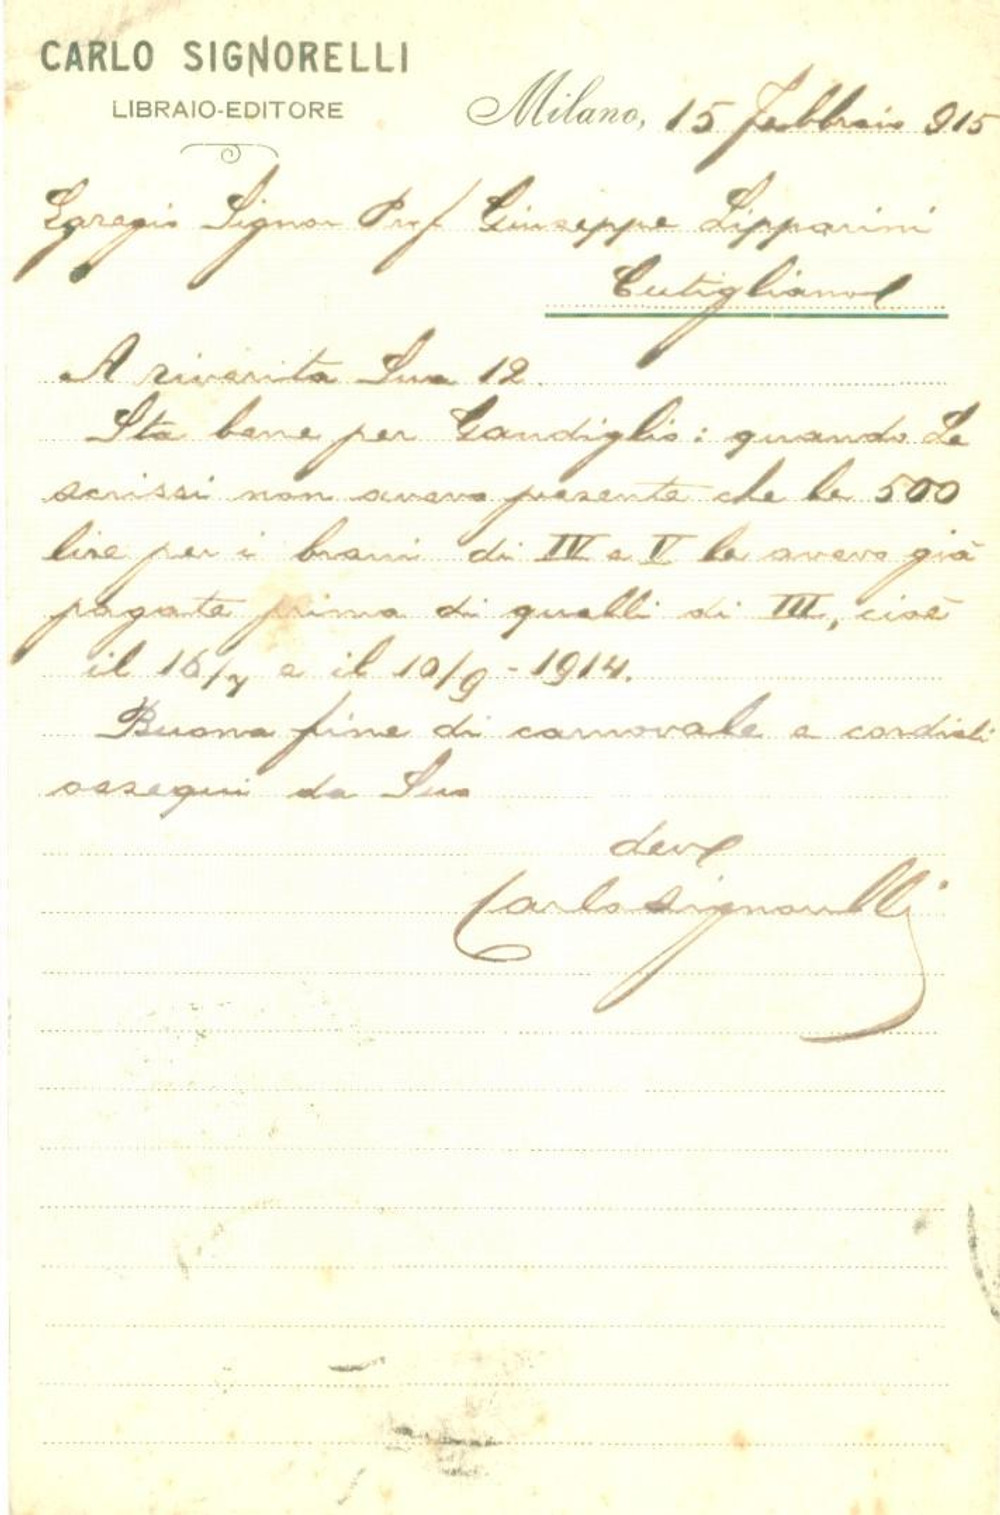 CARLO SIGNORELLI
LIBRAIO-EDITORE
Milano, 15 Febbraio 915
Egregio Signor Prof Giuseppe Lipparini
Cutigliano
A riverita Sua 12.
Sta bene per Gandiglio: quando Le
scrissi non avevo presente che le 500
lire per i brani di IV e V le avevo già
pagate prima di quelli di III, cioè
il 16/7 e il 10/9 - 1914.
Buona fine di carnovale e cordiali
ossequi da Suo
dev
Carlo Signorelli